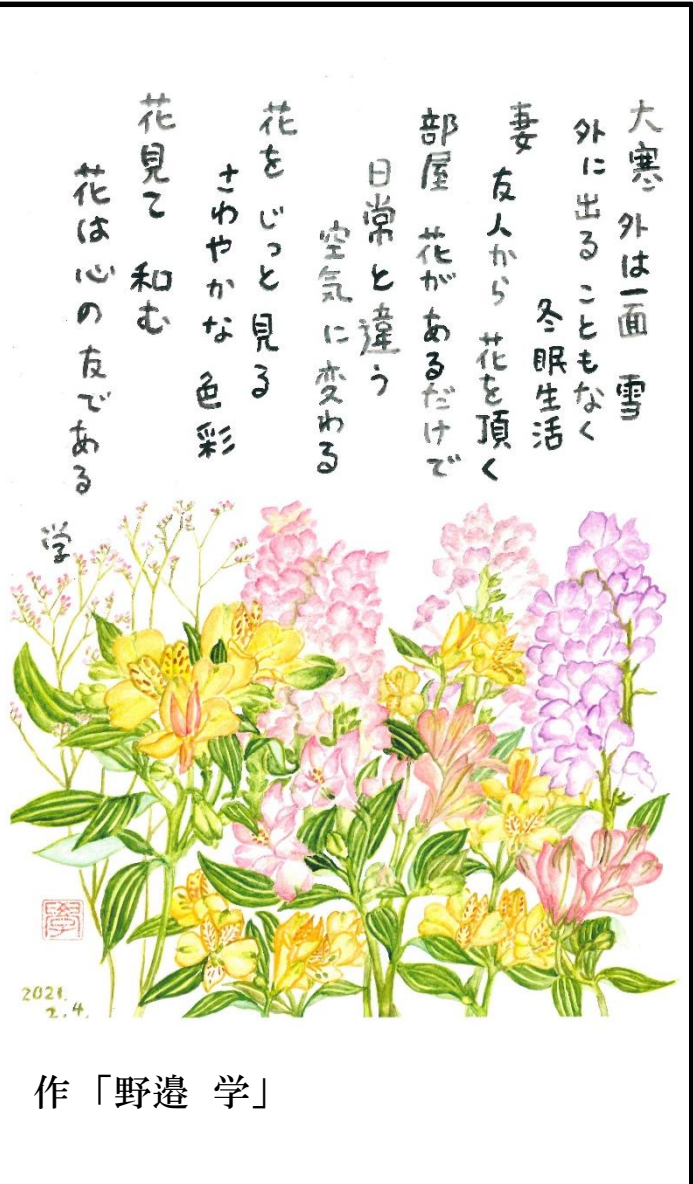 大寒 外は一面 雪
外に出る こともなく
冬眠生活
妻 友人から 花を頂く
部屋 花が あるだけで
日常と違う
空気に変わる
花を じっと 見る
さわやかな 色彩
花見て 和む
花は心の友である
学
2021.
2.4.
作「野邉 学」